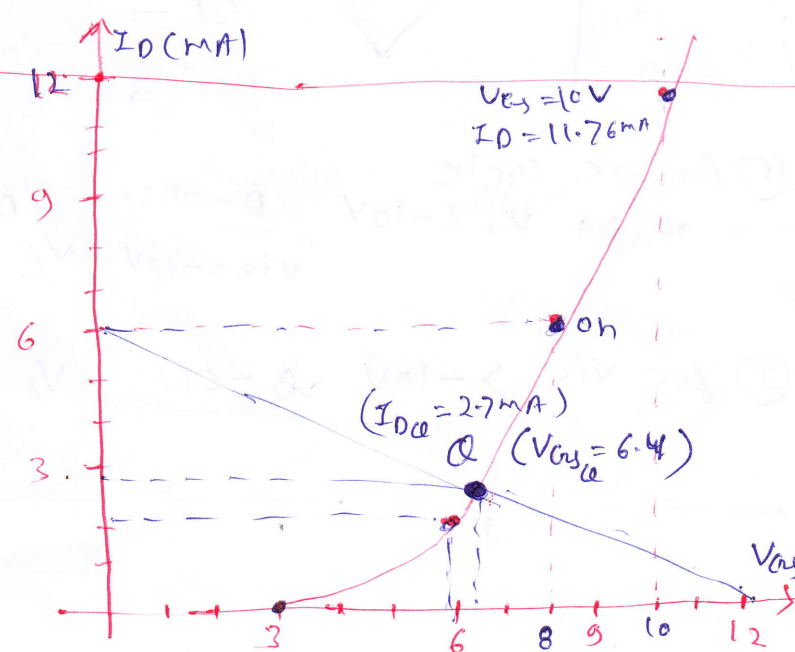 ID(MA)
12
VGS=10V
ID=11.76mA
9
6
on
(IDQ=2.7mA)
Q (VGSQ=6.4)
3
VGS
3 6 8 9 10 12